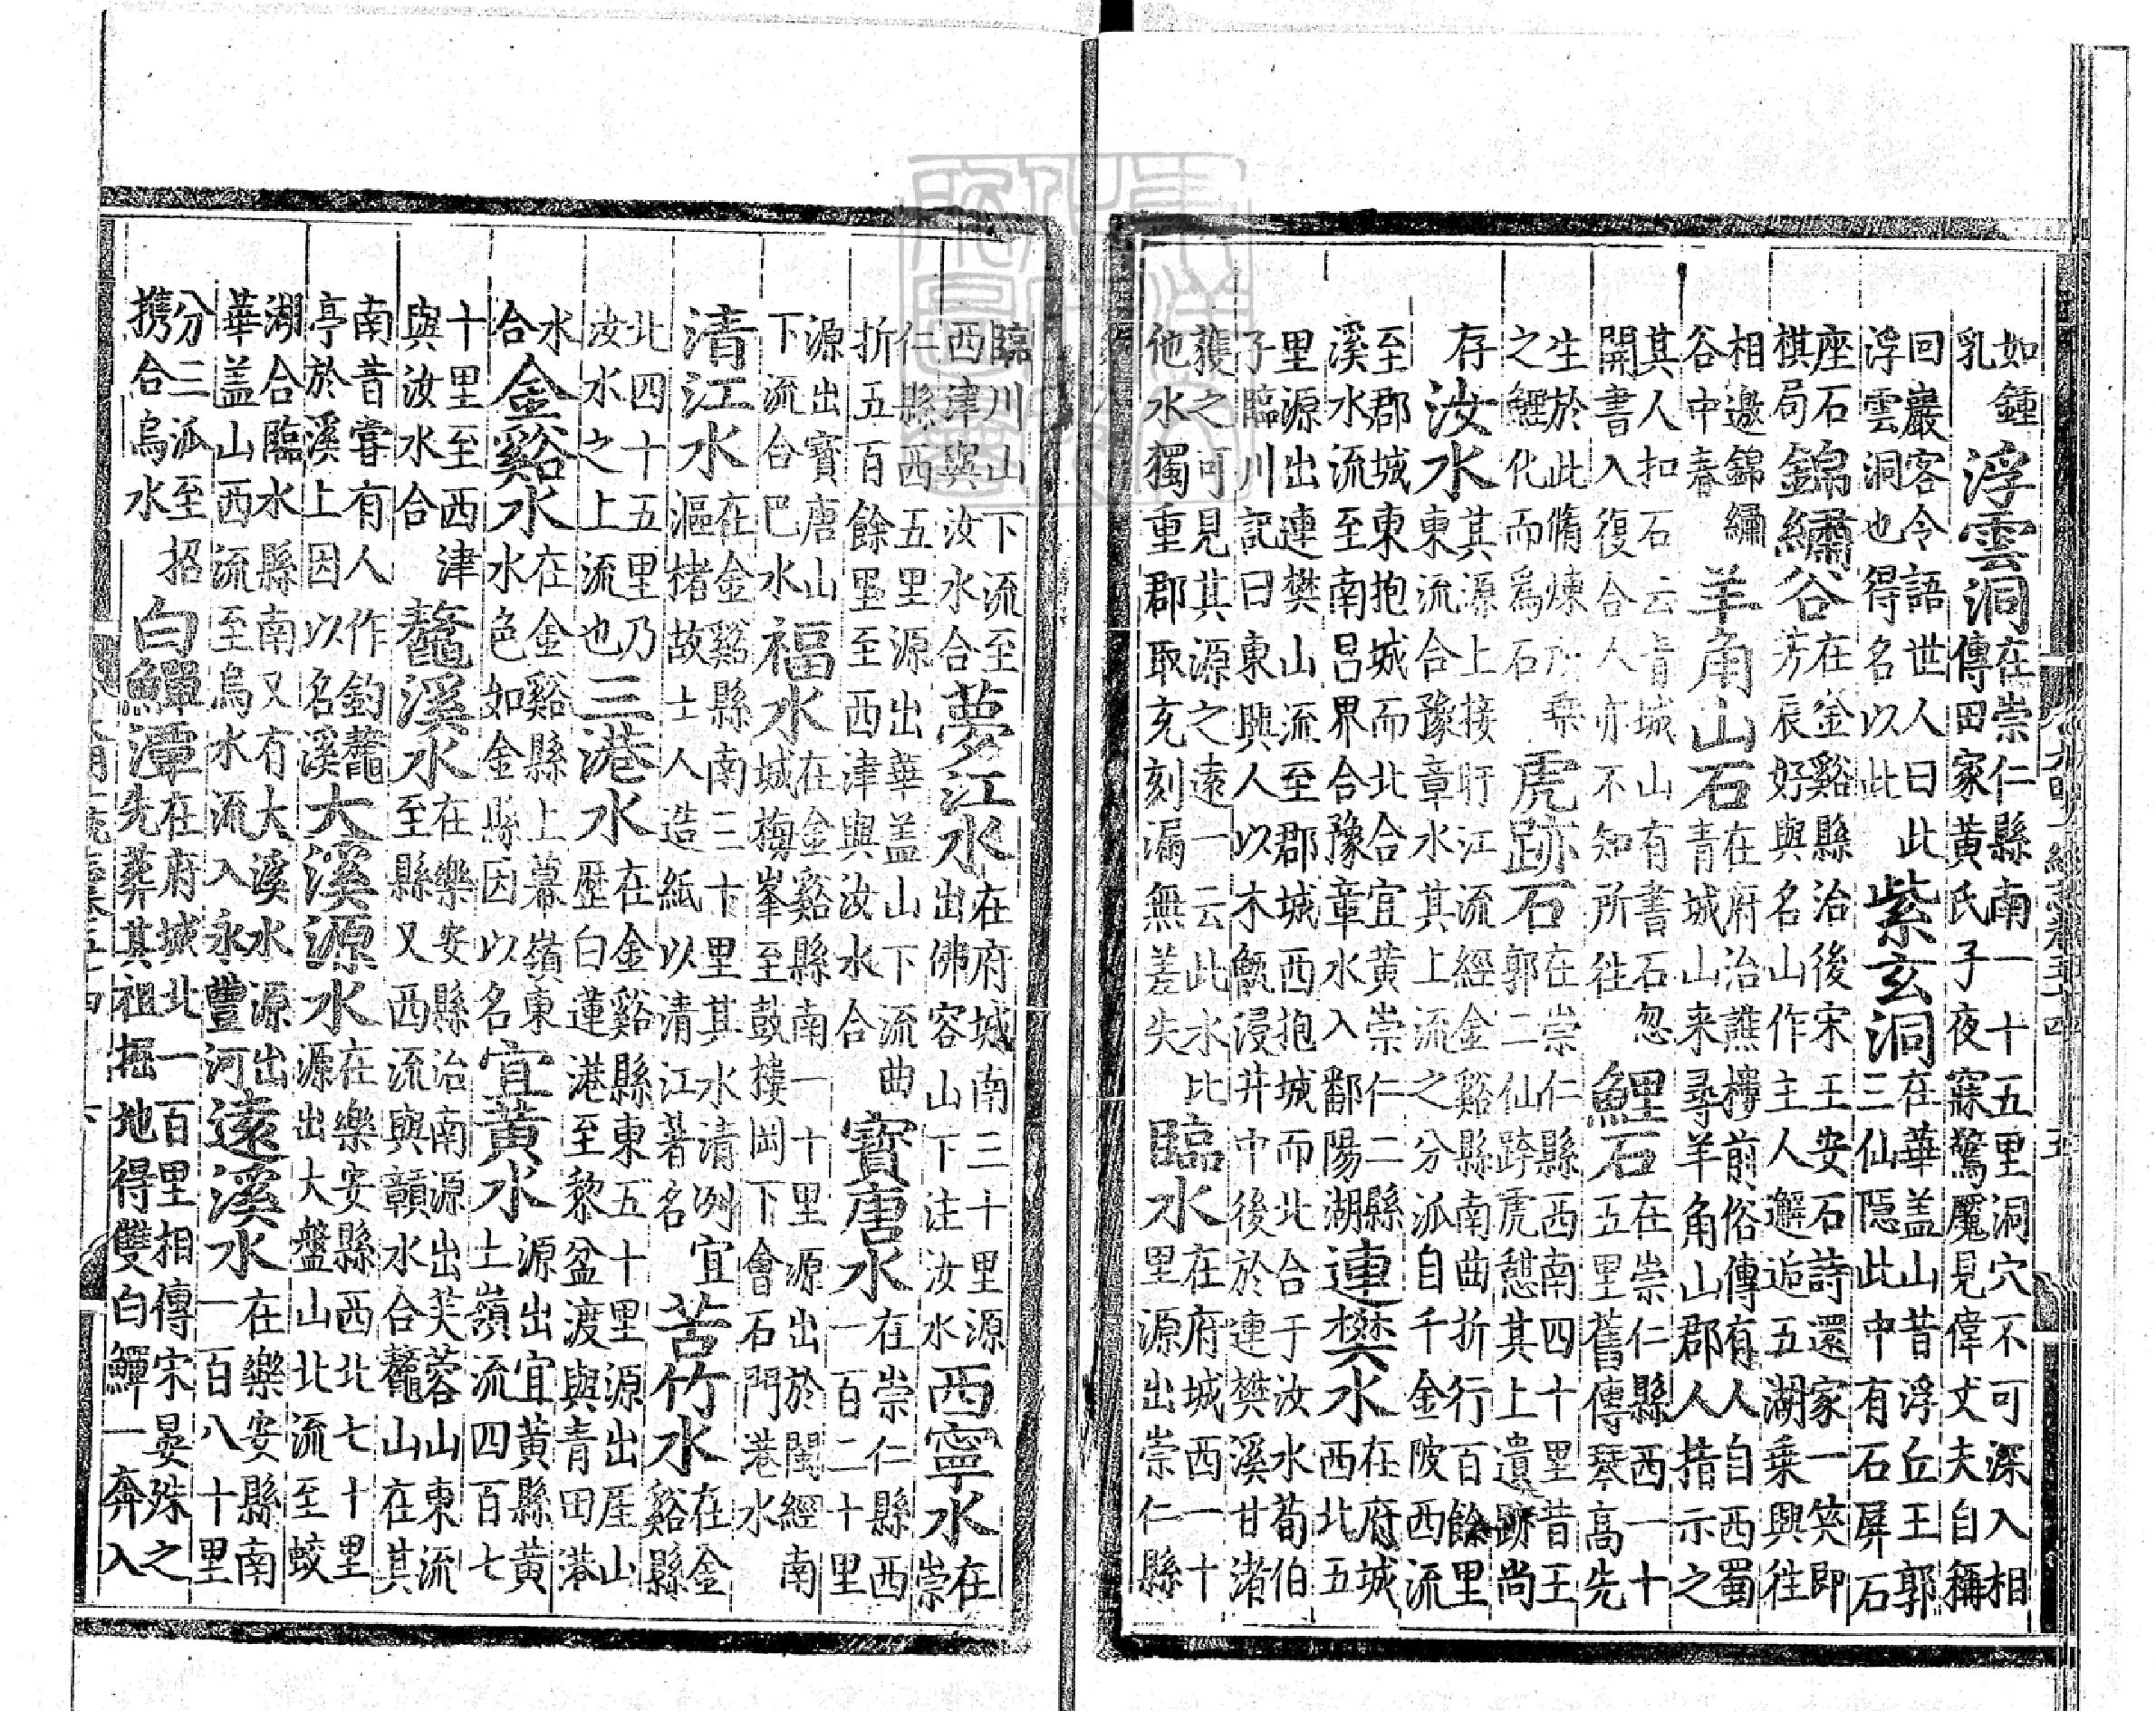 如鍾
乳
浮雲洞
在崇仁縣南一十五里洞穴不可深入相
傳田家黃氏子夜寐驚魘見偉丈夫自稱
回巖客令語世人曰此
浮雲洞也得名以此
紫玄洞
在華盖山昔浮丘王郭
三仙隱此中有石屏石
座石
棋局
錦繡谷
在金谿縣治後宋王安石詩還家一笑即
芳辰好與名山作主人邂逅五湖乗興往
相邀錦繡
谷中春
羊角山石
在府治譙樓前俗傳有人自西蜀
青城山来尋羊角山郡人指示之
其人扣石云青城山有書石忽
開書入復合人亦不知所往
鯉石
在崇仁縣西一十
五里舊傳琴高先
生於此脩煉所乗
之鯉化而爲石
虎跡石
在崇仁縣西南四十里昔王
郭二仙跨虎憇其上遺跡尚
存
汝水
其源上接盱江流經金谿縣南曲折行百餘里
東流合豫章水其上流之分派自千金陂西流
至郡城東抱城而北合宜黃崇仁二縣
溪水流至南昌界合豫章水入鄱陽湖
連樊水
在府城
西北五
里源出連樊山流至郡城西抱城而北合于汝水荀伯
子臨川記曰東興人以木甑浸井中後於連樊溪甘渚
獲之可見其源之遠一云此水比
他水獨重郡取充刻漏無差失
臨水
在府城西一十
里源出崇仁縣
臨川山下流至
西津與汝水合
夢江水
在府城南三十里源
出佛容山下注汝水
西寧水
在
崇
仁縣西五里源出華盖山下流曲
折五百餘里至西津與汝水合
寶唐水
在崇仁縣西
一百二十里
源出寶唐山
下流合巴水
福水
在金谿縣南一十里源出於閩經南
城梅峯至鼓樓岡下會石門港水
清江水
在金谿縣南三十里其水清冽宜
漚楮故士人造紙以清江著名
苦竹水
在金
谿縣
北四十五里乃
汝水之上流也
三港水
在金谿縣東五十里源出厓山
歷白蓮港至黎盆渡與青田港
水
合
金谿水
在金谿縣上幕嶺東
水色如金縣因以名
宜黃水
源出宜黃縣黃
土嶺流四百七
十里至西津
與汝水合
鼇溪水
在樂安縣治南源出芙蓉山東流
至縣又西流與贛水合鼇山在其
南昔嘗有人作釣鼇
亭於溪上因以名溪
大溪源水
在樂安縣西北七十里
源出大盤山北流至蛟
湖合臨水縣南又有大溪水源出
華盖山西流至烏水流入永豐河
遠溪水
在樂安縣南
一百八十里
分三派至招
携合烏水
白鱓潭
在府城北一百里相傳宋晏殊之
先葬其祖掘地得雙白鱓一奔入